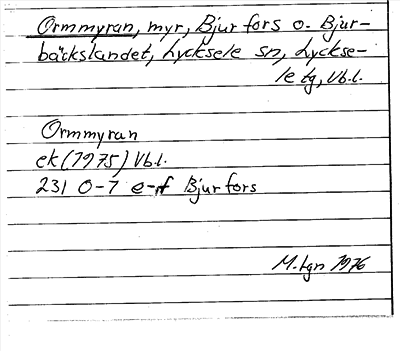 Ormmyran, myr, Bjurfors o. Bjur-
bäckslandet, Lycksele sn, Lyckse-
le tg, Vb.l.
Ormmyran
ek (1975) Vb.l.
231 0-7 e-f Bjurfors
1976